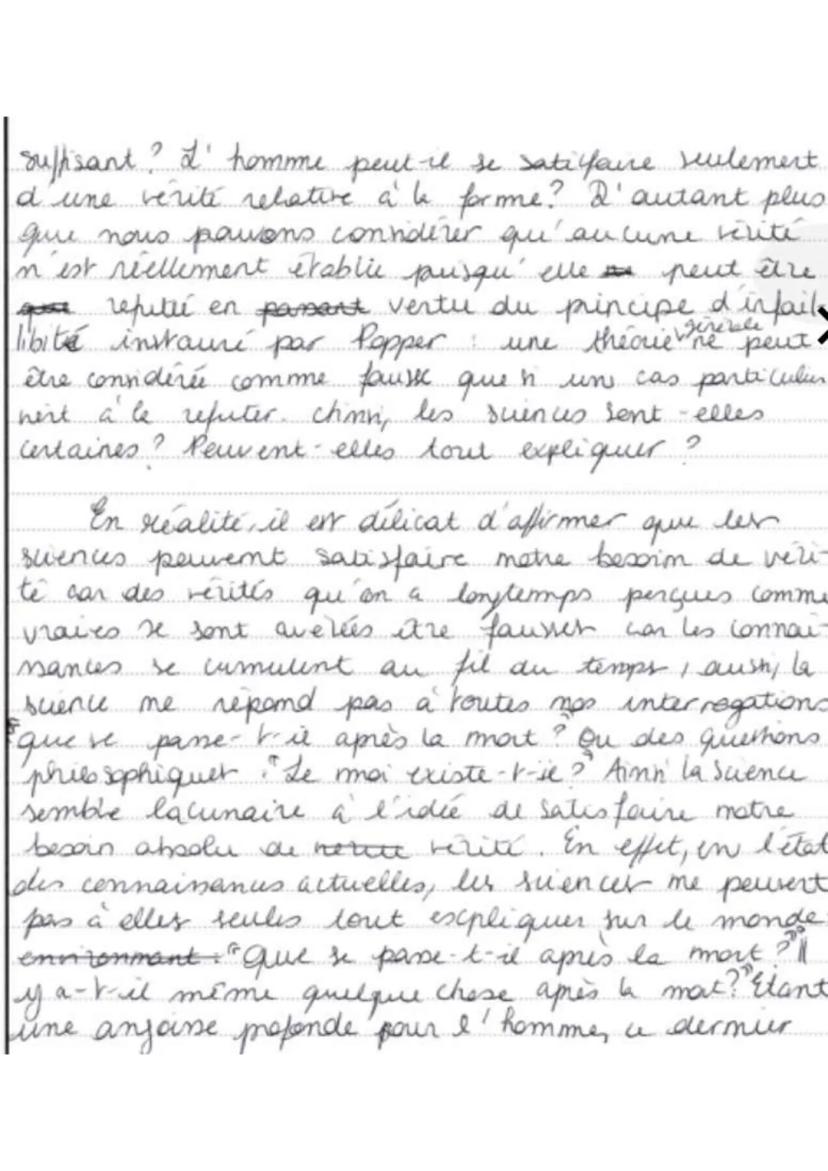 suffisant ? L'homme peut-il se satisfaire seulement
d'une vérité relative à la forme ? D'autant plus
que nous pouvons considérer qu'aucune vérité
n'est réellement établie puisqu'elle peut être
refutée en passant vertu du principe d'infail-
libité instauré par Popper : une théorie générale ne peut
être considérée comme fausse que si un cas particulier
vient à la refuter. Ainsi, les sciences sont-elles
certaines ? Peuvent-elles tout expliquer ?
En réalité, il est délicat d'affirmer que les
sciences peuvent satisfaire notre besoin de véri-
té car des vérités qu'on a longtemps perçues comme
vraies se sont avérées être fausses car les connai-
ssances se cumulent au fil du temps, aussi, la
science ne répond pas à toutes nos interrogations
"que se passe-t-il après la mort ?" Ou des questions
philosophiques : "Le moi existe-t-il ?" Ainsi la science
semble lacunaire à l'idée de satisfaire notre
besoin absolu de vérité. En effet, en l'état
des connaissances actuelles, les sciences ne peuvent
pas à elles seules tout expliquer sur le monde
environnant : "Que se passe-t-il après la mort ?" "Il
y a-t-il même quelque chose après la mort ?" Etant
une angoisse profonde pour l'homme, ce dernier